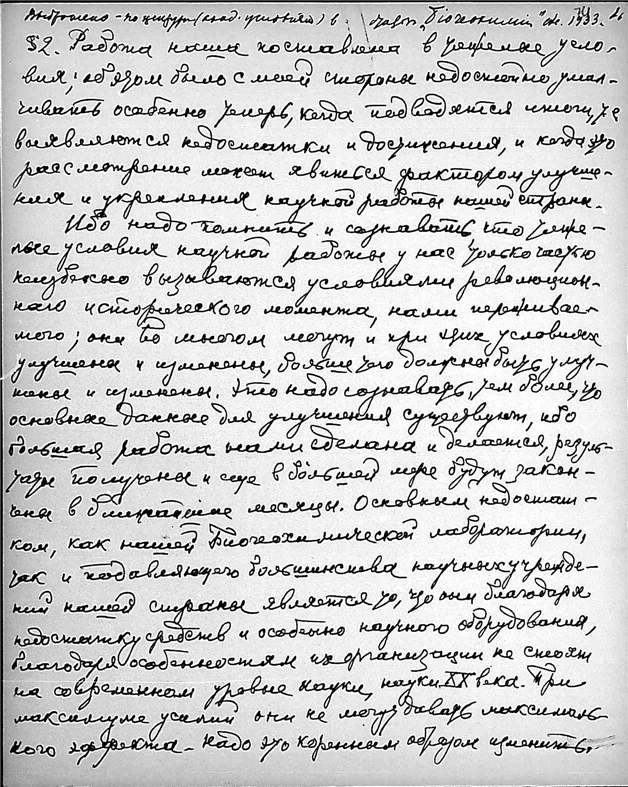 Выброшено - по цензуре (акад. условиям) в статье "Биохимии" 1933.
§2. Работа наша поставлена в тяжелые усло-
вия; образом было с моей стороны недостойно умал-
чивать особенно теперь, когда подводятся итоги,
выявляются недостатки и достижения, и когда это
рассмотрение может явиться фактором улучше-
ния и укрепления научной работы нашей страны.
Ибо надо помнить и сознавать что тяже-
лые условия научной работы у нас только частью
неизбежно вызываются условиями революцион-
ного исторического момента, нами переживае-
мого; они во многом могут и при этих условиях
улучшены и изменены, больше того должны быть улуч-
шены и изменены. Это надо сознавать, тем более, что
основные данные для улучшения существуют, ибо
большая работа нами сделана и делается, резуль-
таты получены и еще в большей мере будут закон-
чены в ближайшие месяцы. Основным недостат-
ком, как нашей Биогеохимической лаборатории,
так и подавляющего большинства научных учрежде-
ний нашей страны является то, что они благодаря
недостатку средств и особенно научного оборудования,
благодаря особенностям их организации не стоят
на современном уровне науки, науки XX века. При
максимуме усилий они не могут давать максималь-
ного эффекта - надо это коренным образом изменить.